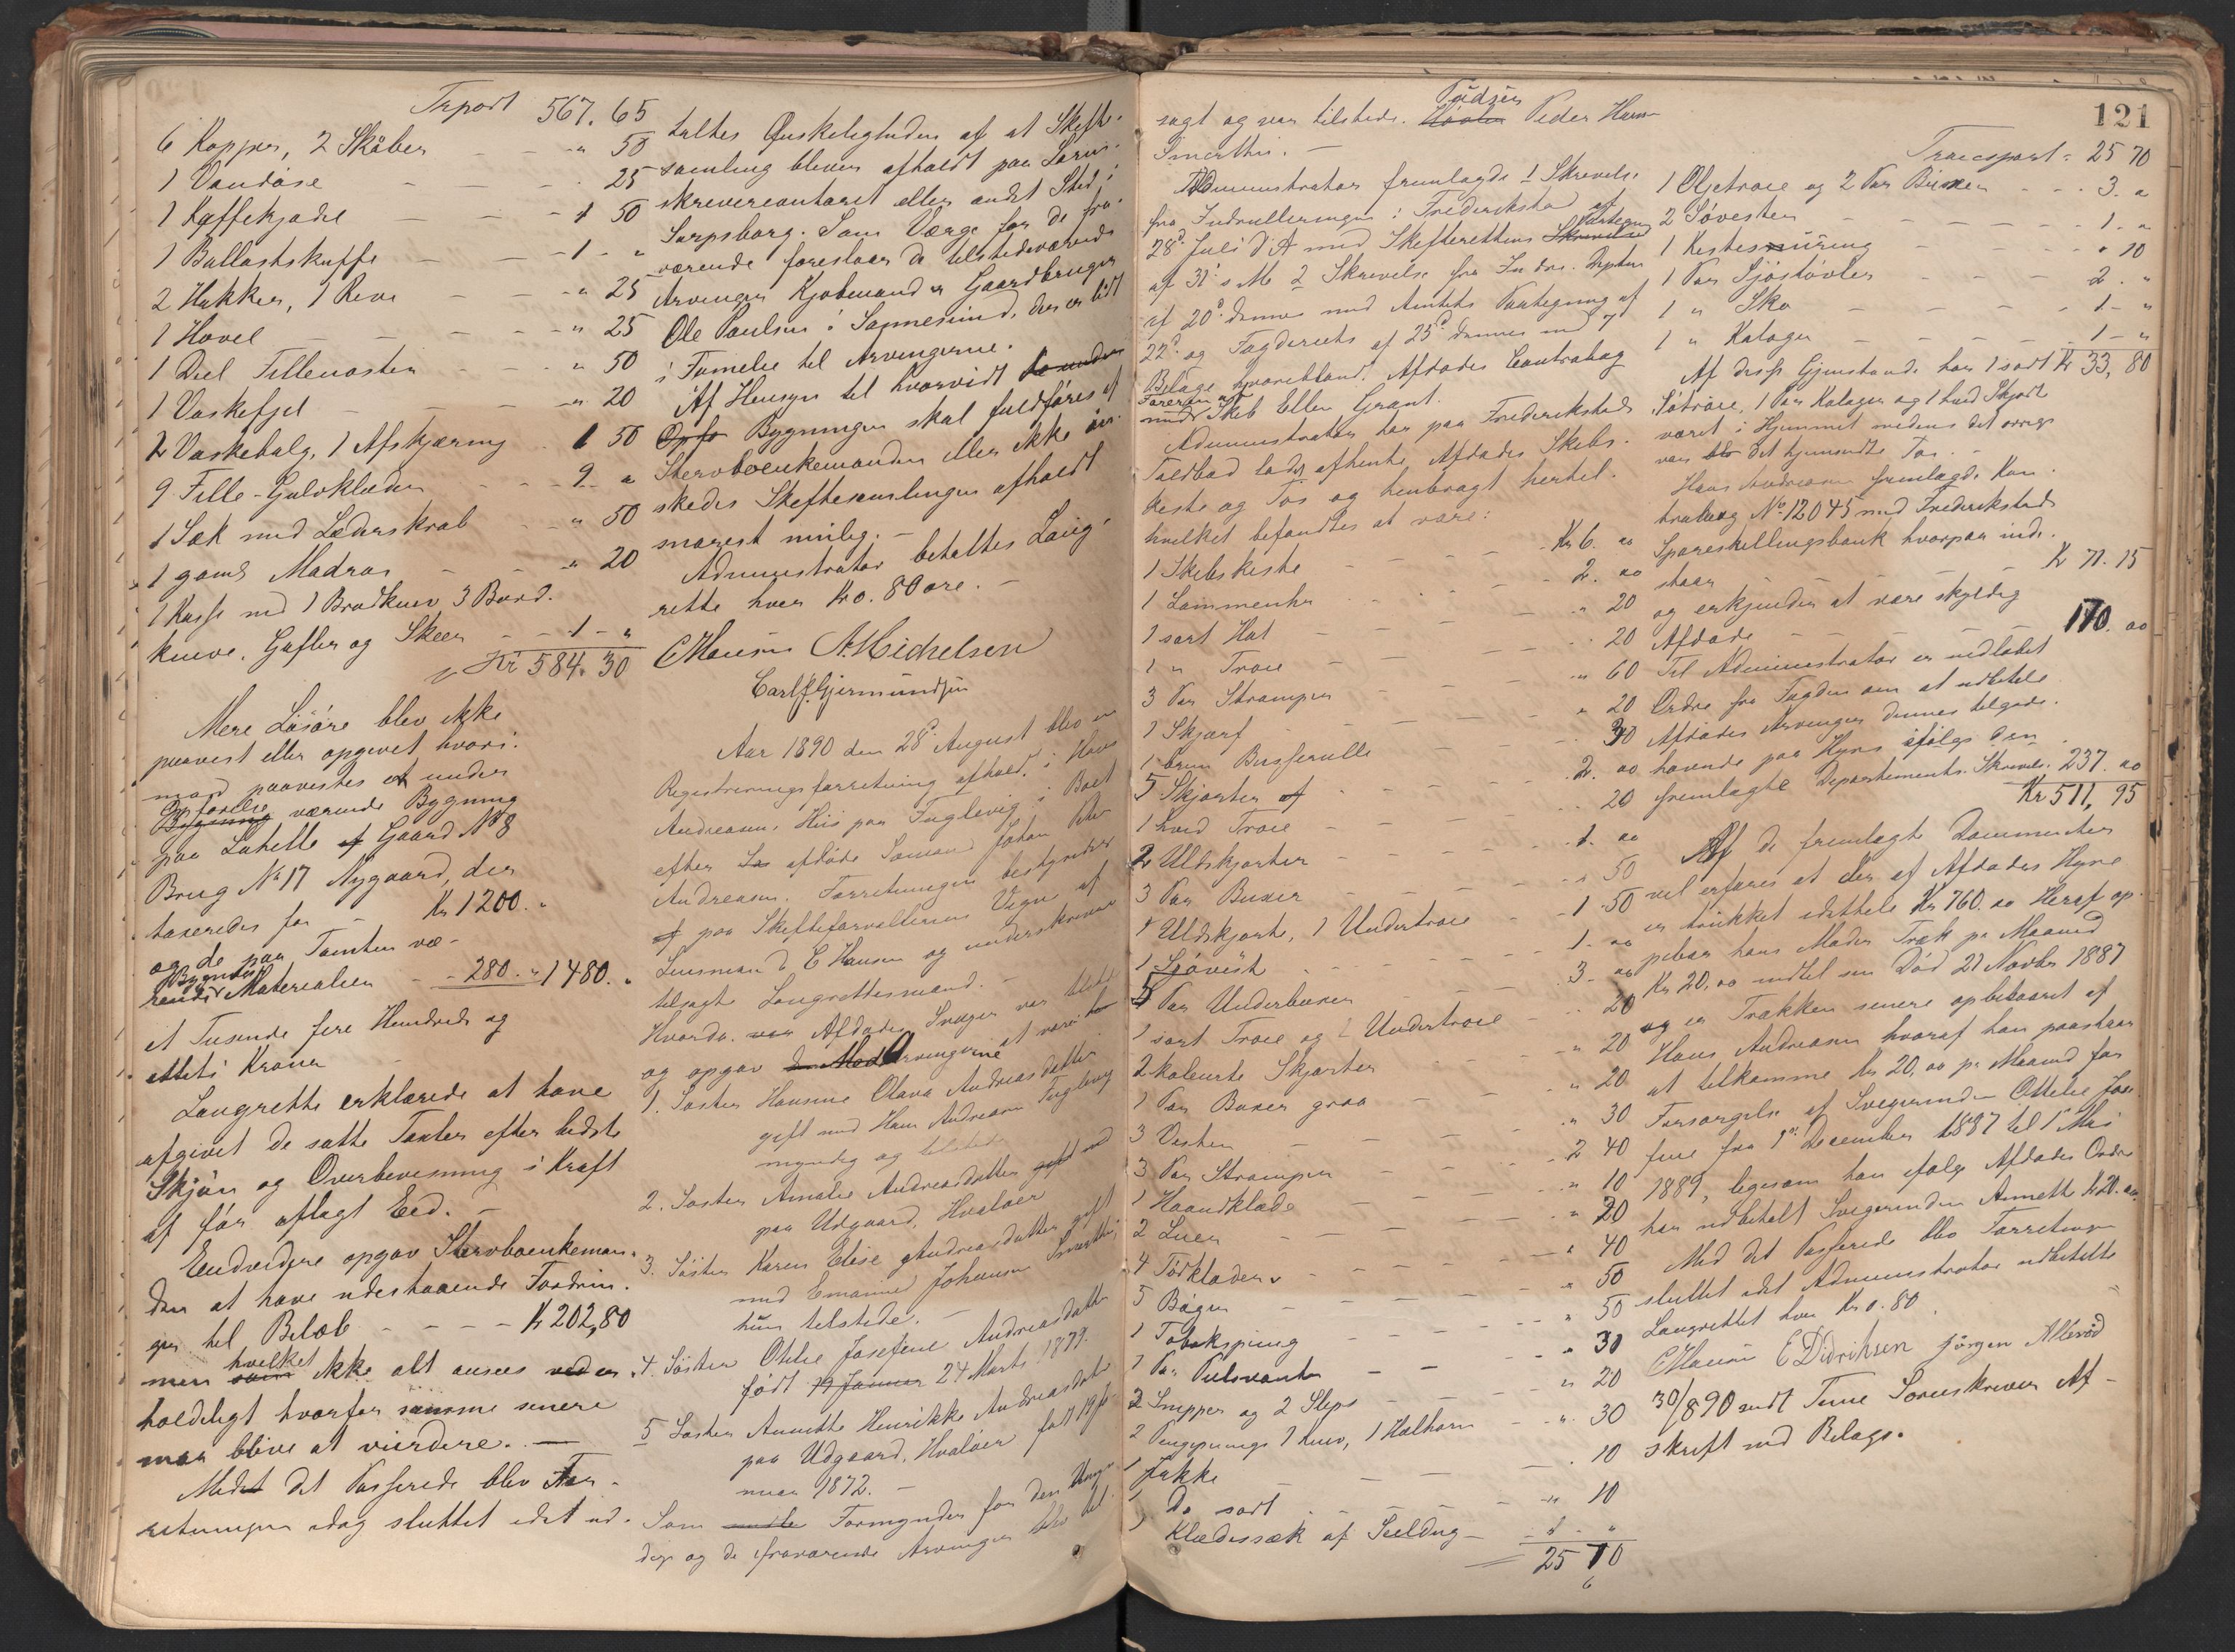 Trport 567. 65
6 Kopper, 2 Skåber - - " 50
1 Vandøse - - - 25
1 Kaffekjedel - - 1 50
1 Ballastskuffe - - 1 - "
2 Hakker, 1 Rive - - " 25
1 Høvel - - - " 25
1 Deel - " 50
1 Vaskefjel - - - " 20
2 Vaskebalg, 1 Afskjæring - 1 50
9 Fille-Gulvklæder - - 9 - "
1 Sæk med Læderskrab - - " 50
1 gaml Madras - - " 20
1 Kasse med 1 Brødkniv 3 Bord-
knive, Gafler og Skeer - - 1 - "
Kr 584. 30
Mere Løsøre blev ikke
paavist eller opgivet hvori-
mod paavistes et under
Opførelse
Bygning værende Bygning
paa Gaard No 8
Brug No 17 Nygaard, der
taxeredes for - Kr 1200. "
og de paa Tomten væ-
Bygnings
rende Materialier - 280. " 1480. "
et Tusende fire Hundrede og
otteti Kroner
Laugrette erklærede at have
afgivet de satte Taxter efter bedste
Skjøn og Overbevisning i Kraft
af før aflagt Eed. -
Endvidere opgav Stervboenkeman-
den at have udestaaende Fordrin-
ger til Beløb - - - - Kr 202,80
hvilket
men som ikke alt ansees ved er-
holdeligt hvorfor samme senere
maa blive at vurdere. -
Med det Passerede blev For-
retningen idag sluttet idet ud-
taltes Ønskeligheden af at Skifte-
samling bliver afholdt paa Soren-
skrivercontoret eller andet Sted i
Sarpsborg. Som Værge for de fra-
værende foreslaar de tilstedeværende
Arvinger Kjøbmand og Gaardbruger
Ole Paulsen i Sannesund, der er lidt
i Familie til Arvingerne.
Af Hensyn til hvorvidt
Opfø Bygningen skal fuldføres af
Stervboenkemanden eller ikke øn-
skedes Skiftesamlingen afholdt
snarest mulig. -
Administrator betaltes Laug-
rette hver Kr 0. 80 øre. -
CHansen A. Michelsen
Carl J. Gjermundsen
Aar 1890 den 28de August blev en
Registreringsforretning afholdt i Hans
Andreasens Hus paa Fuglevig i Boet
efter afdøde Sømand Johan Peter
Andreasen. Forretningen bestyredes
af paa Skifteforvalterens Vegne af
Lensmand C Hansen og underskrevne
tilsagte Laugrettesmænd. -
Hvorda. var Afdødes Svoger var tilstede
og opgav Arvingerne at være:
1. Søster Hansine Olava Andreasdatter
gift med Hans Andreasen Fuglevig
myndig og tilstede
2. Søster Amalie Andreasdatter gift med
paa Udgaard, Hvaløer
3. Søster Karen Elise Andreasdatter gift
med Emanuel Johansen
hun tilstede. -
4. Søster Otilie Josefine Andreasdatter
født 19 Januar 24 Marts 1879.
5 Søster Annette Henrikke Andreasdatter
paa Udgaard, Hvaløer født 19 fe-
1872. -
Som Formynder for den Umyn-
dige og de fraværende Arvinger blev til-
121
sagt og var tilstede. Peder Hansen
Smertho. -
Administrator fremlagde 1 Skrivelse
fra Indrulleringen i Frederikstad af
28d Juli d A med Skifterettens Paategning
af 31 s M 2 Skrivelse fra Indre. Deptem
af 20d dennes med Amtets Paategning af
22d og Fogderiets af 25d dennes med 7
Bilage hvoriblandt Afdødes Contrabog
Føreren af
med Skib Ellen Grant.
Administrator har paa Frederikstads
Toldbod ladet afhente Afdødes Skibs-
kiste og Tøi og henbragt hertil.
hvilket befandtes at være:
1 Skibskiste - - - Kr 6. oo
1 Lommeuhr - - - 2. oo
1 sort Hat - - - " 20
1 " Trøie - - - " 20
3 Par Strømper - - - " 60
1 Skjærf - - - " 20
1 brun Busserulle - - - 30
5 Skjorter - - - 2. oo
1 hvid Trøie - - - 20
2 Uldskjorter - - - 1. oo
3 Par Buxer - - - " 50
1 Uldskjorte, 1 Undertrøie - 1. 50
1 Sjøvest - - - 1. oo
5 Par Underbuxer - - - 3. oo
1 sort Trøie og 2 Undertrøie - 20
2 kolerte Skjorter - - - " 20
1 Par Buxer graa - - - " 20
3 Veste - - - " 30
3 Par Strømper - - - 2 40
1 Haandklæde - - - " 10
2 Luer - - - " 20
4 Tørklæder - - - " 40
5 Bøger - - - " 50
1 Tobakspung - - - " 50
1 Par Pulsvanter - - - " 30
2 Snipper og 2 Slips - - - " 20
2 Pengepunge 1 Kniv, 1 Hælhorn - " 30
1 Jakke - - - " 10
1 Do sort - - - " 10
1 Klædessæk af Seeldug - - 1 - "
25 70
Transport - 25 70
1 Oljetrøie og 2 Par Buxer - - 3. "
2 Søvester - - - 1. "
1 Kistesnüring - - - " 10
1 Par Sjøstøvler - - - 2. "
1 " Sko - - - 1 - "
1 " Kaloger - - - 1 - "
Kr 33, 80
Af disse Gjenstande har 1 sort
Søtrøie, 1 Par Kaloger og 1 hvid Skjorte
været i Hjemmet medens det øvrige
var det hjemsendte Tøi. -
Hans Andreasen fremlagde Kon-
trabog No 12045 med Frederikstads
Sparskillingsbank hvorpaa inde-
staar - - - Kr 71. 15
og erkjender at være skyldig
Afdøde - - - 170. oo
Til Administrator er indløbet
Ordre fra Fogden om at udbetale
Afdødes Arvinger dennes tilgode-
havende paa Hyre ifølge den
fremlagte Departements Skrivelse. 237. oo
Kr 511, 95
Af de fremlagte Dokumenter
vil erfares at der af Afdødes Hyre
er trukket idethele Kr 760. oo Heraf op-
pebar hans Moder Træk pr Maaned
Kr 20, oo indtil sin Død 21 Novbr 1887
og er Trækken senere opbebaaret af
Hans Andreasen hvoraf han paastaar
at tilkomme Kr 20, oo pr Maaned for
Forsørgelse af Svigerinden Ottilie Jose-
fine fra 1ste December 1887 til 1 Mai
1889, ligesom han ifølge Afdødes Ordre
har udbetalt Svigerinden Annette Kr 20. oo.
Med det Passerede blev Forretningen
sluttet idet Administrator udbetalte
Laugrettet hver Kr 0. 80.
CHansen E Didriksen Jørgen Allerød
30/8 90 sendt Tune Sorenskriver Af-
skrift med Bilage.